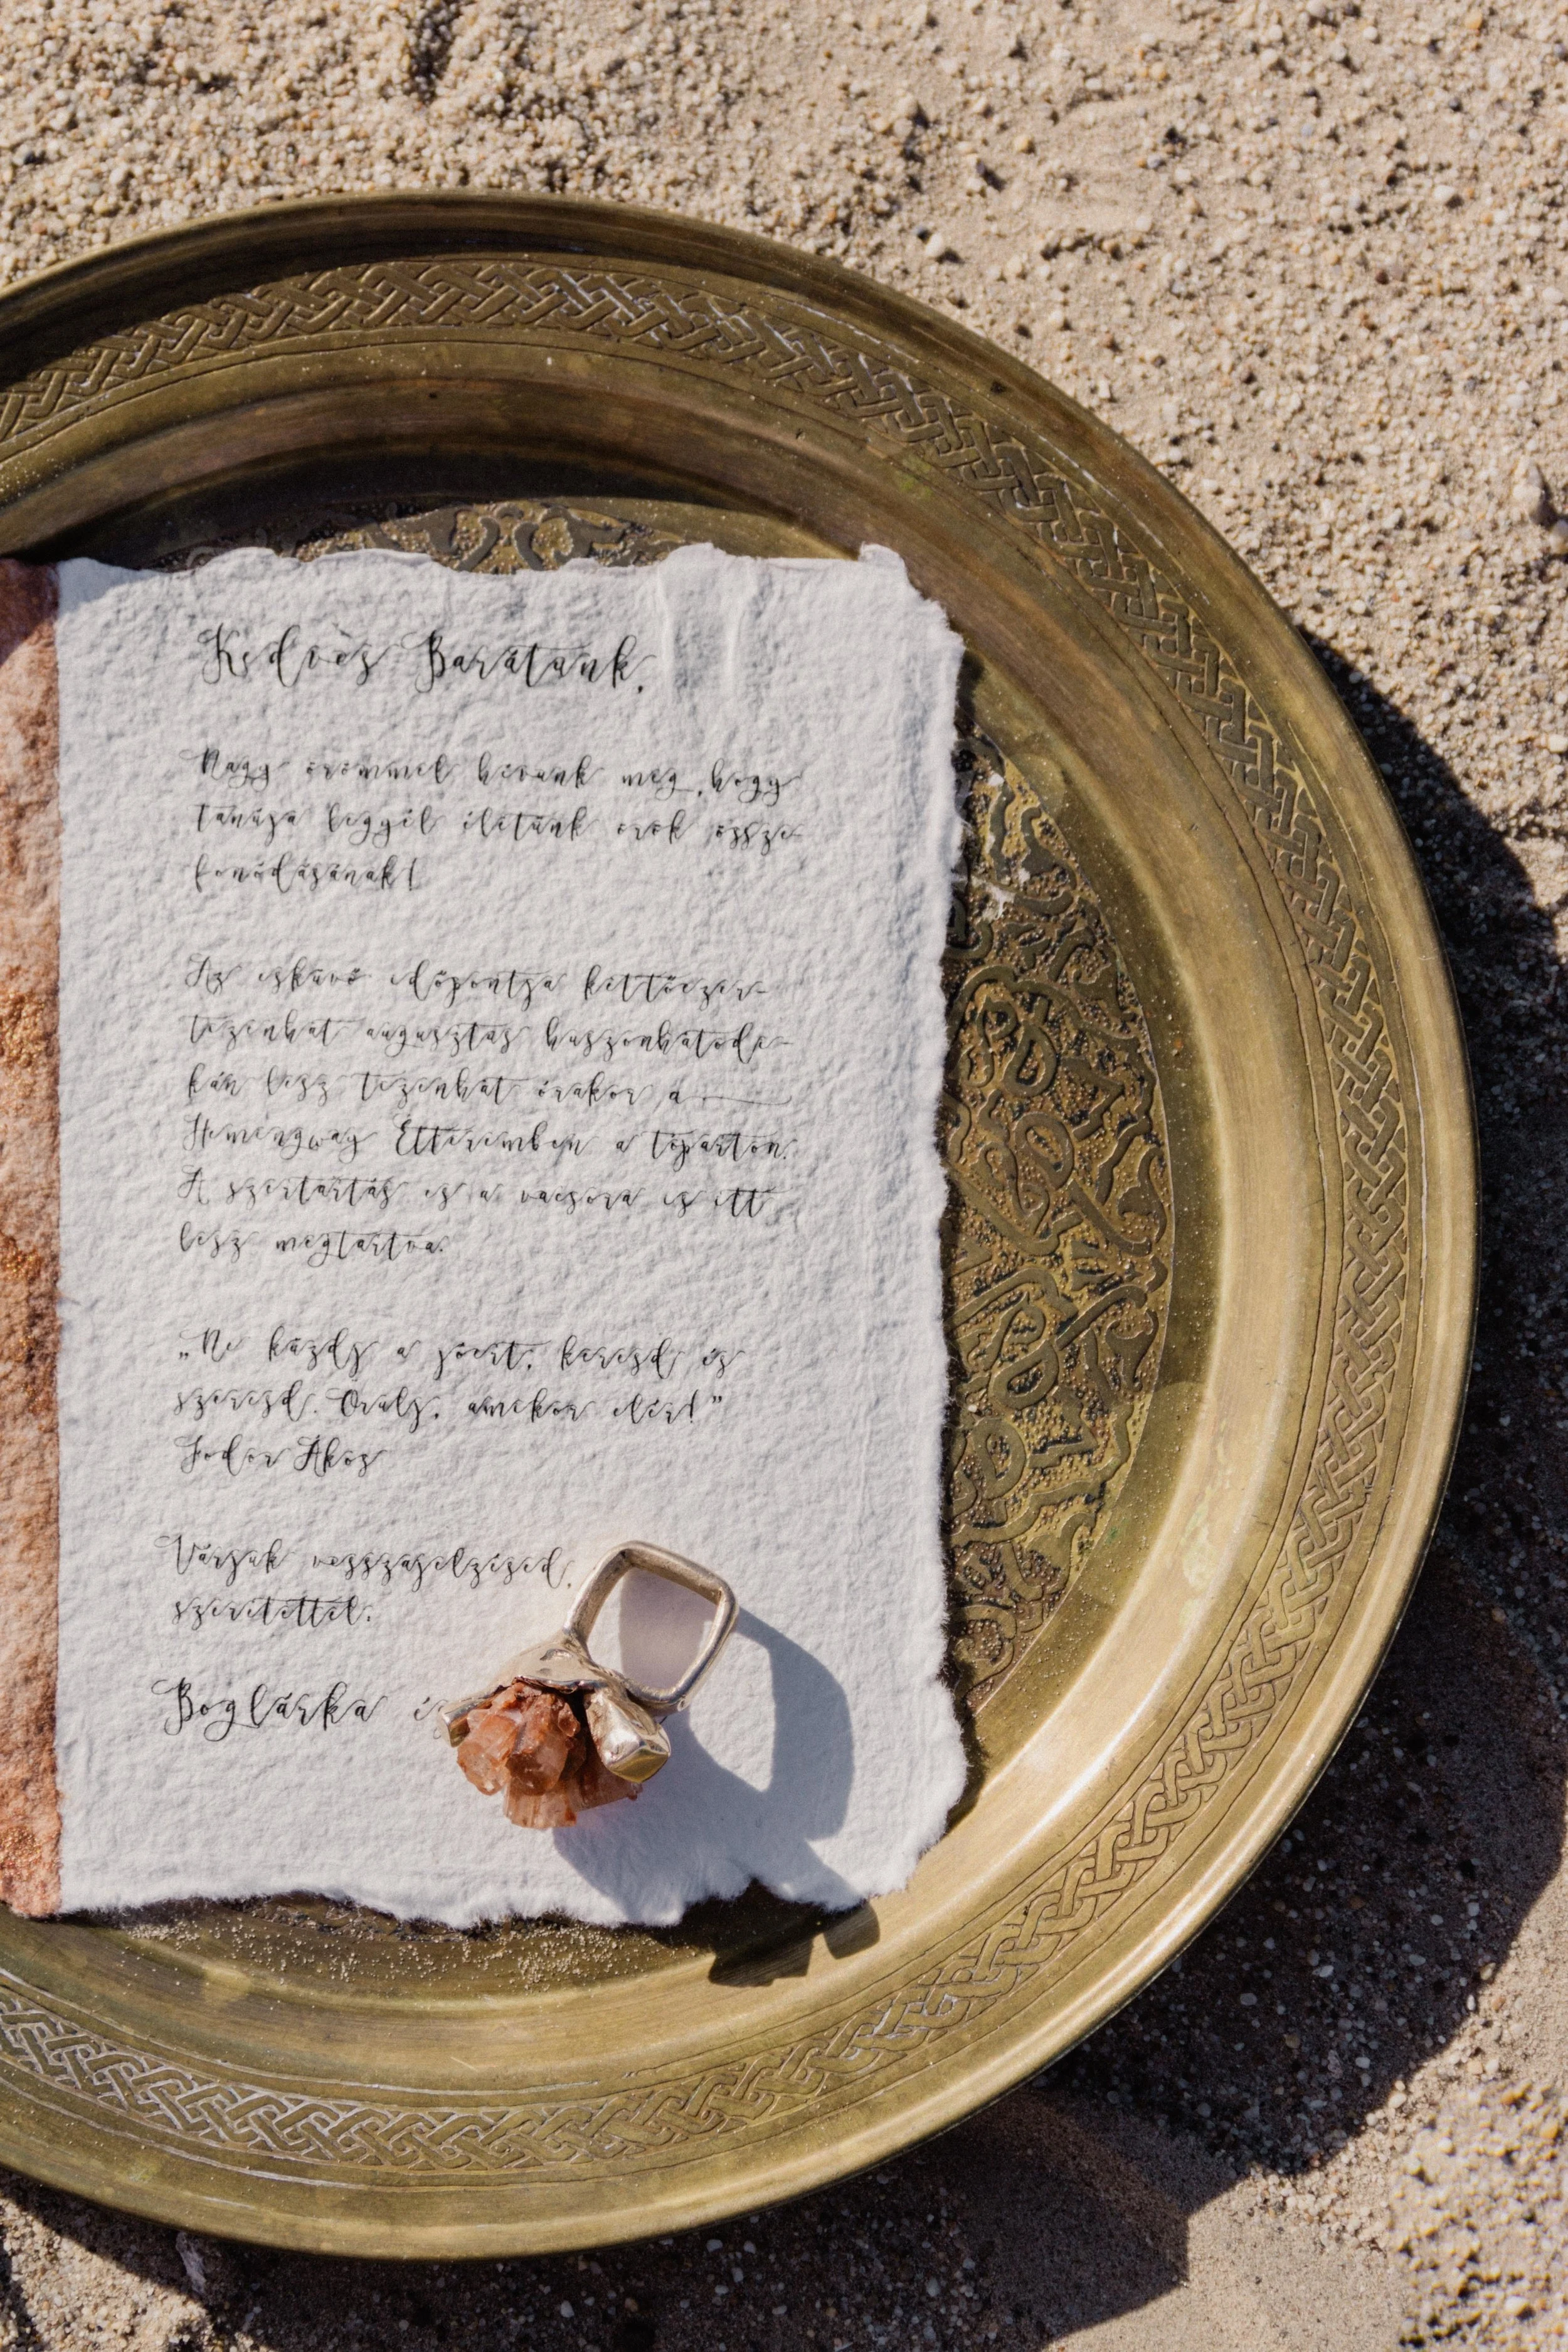 Kedves Barátunk,
Nagy örömmel hívunk meg, hogy
tanúja legyél életünk örök össze-
fonódásának!
Az esküvő időpontja kettőezer-
tizenhat augusztus huszonhatodi-
kán lesz tizenhat órakor a
Hemingway Étteremben a tóparton.
A szertartás és a vacsora is itt
lesz megtartva.
„Ne küzdj a jóért, keresd és
szerezd. Örülj, amikor elér!”
Fodor Ákos
Várjuk visszajelzésed,
szeretettel:
Boglárka